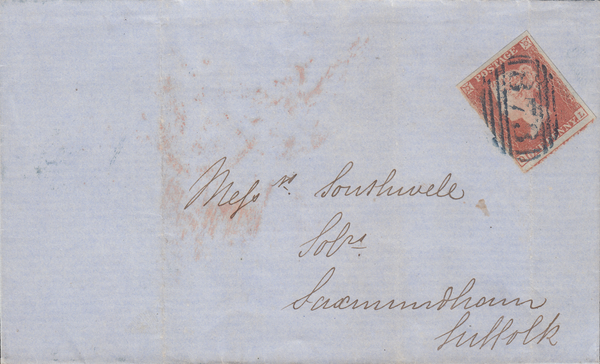 POSTAGE
873
Messrs Southwell
Solrs
Saxmundham
Suffolk